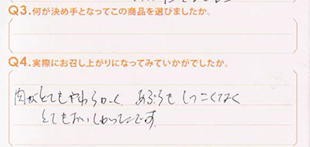 Q3.何が決め手となってこの商品を選びましたか。
Q4.実際にお召し上がりになってみていかがでしたか。
肉がとてもやわらかく あぶらも しつこくなく
とてもおいしかったです